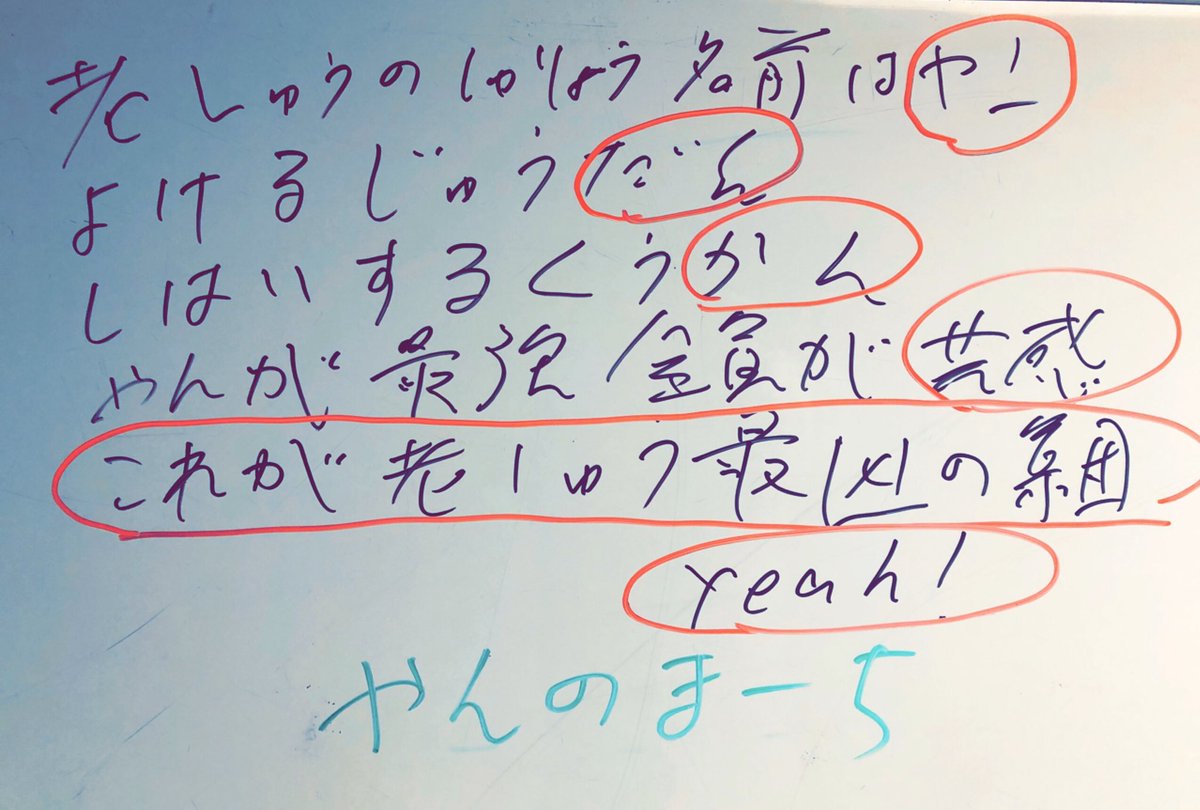 老しゅうのしゅりょう名前はヤン
よけるじゅうだん
しはいするくうかん
やんが最強 全員が共感
これが老しゅう最凶の組
yeah!
やんのまーち